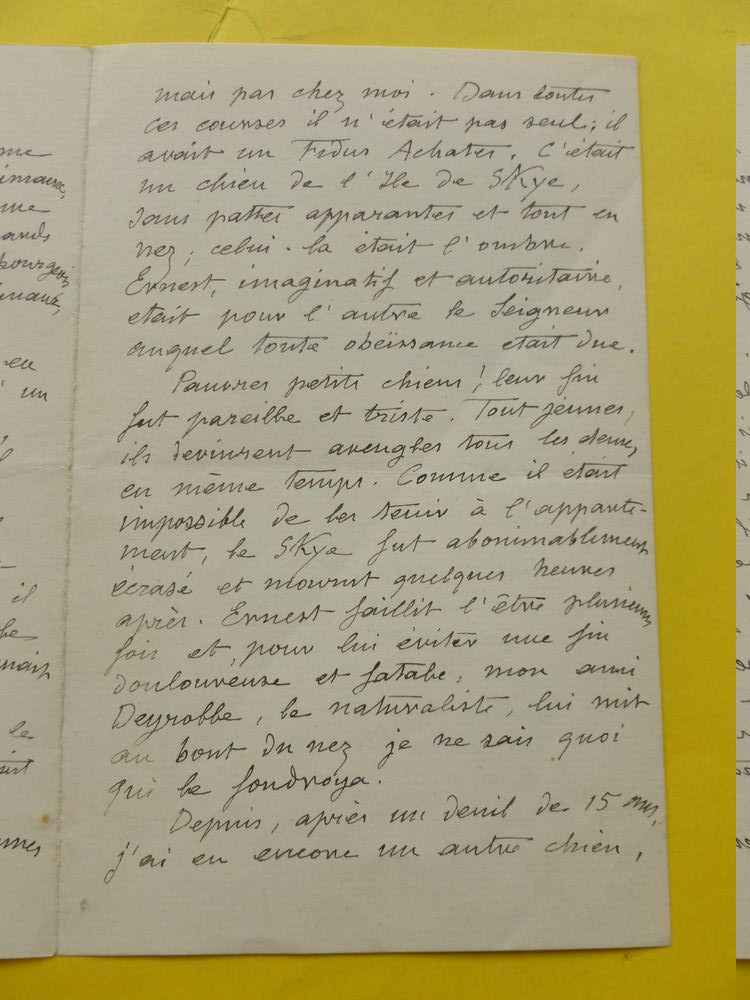 mais pas chez moi. Dans toutes
ces courses il n'était pas seul; il
avait un Fidus Achates. C'était
un chien de l'Ile de Skye,
sans pattes apparantes et tout en
nez; celui-la était l'ombre.
Ernest, imaginatif et autoritaire,
etait pour l'autre le Seigneur
auquel toute obëissance etait due.
Pauvres petits chiens! leur fin
fut pareille et triste. Tout jeunes,
ils devinrent aveugles tous les deux,
en même temps. Comme il était
impossible de les tenir à l'apparte-
ment, le Skye fut abominablement
écrasé et mourut quelques heures
après. Ernest faillit l'être plusieurs
fois et, pour lui éviter une fin
douloureuse et fatale, mon ami
Deyrolle, le naturaliste, lui mit
au bout du nez je ne sais quoi
qui le foudroya.
Depuis, après un deuil de 15 ans,
j'ai eu encore un autre chien,